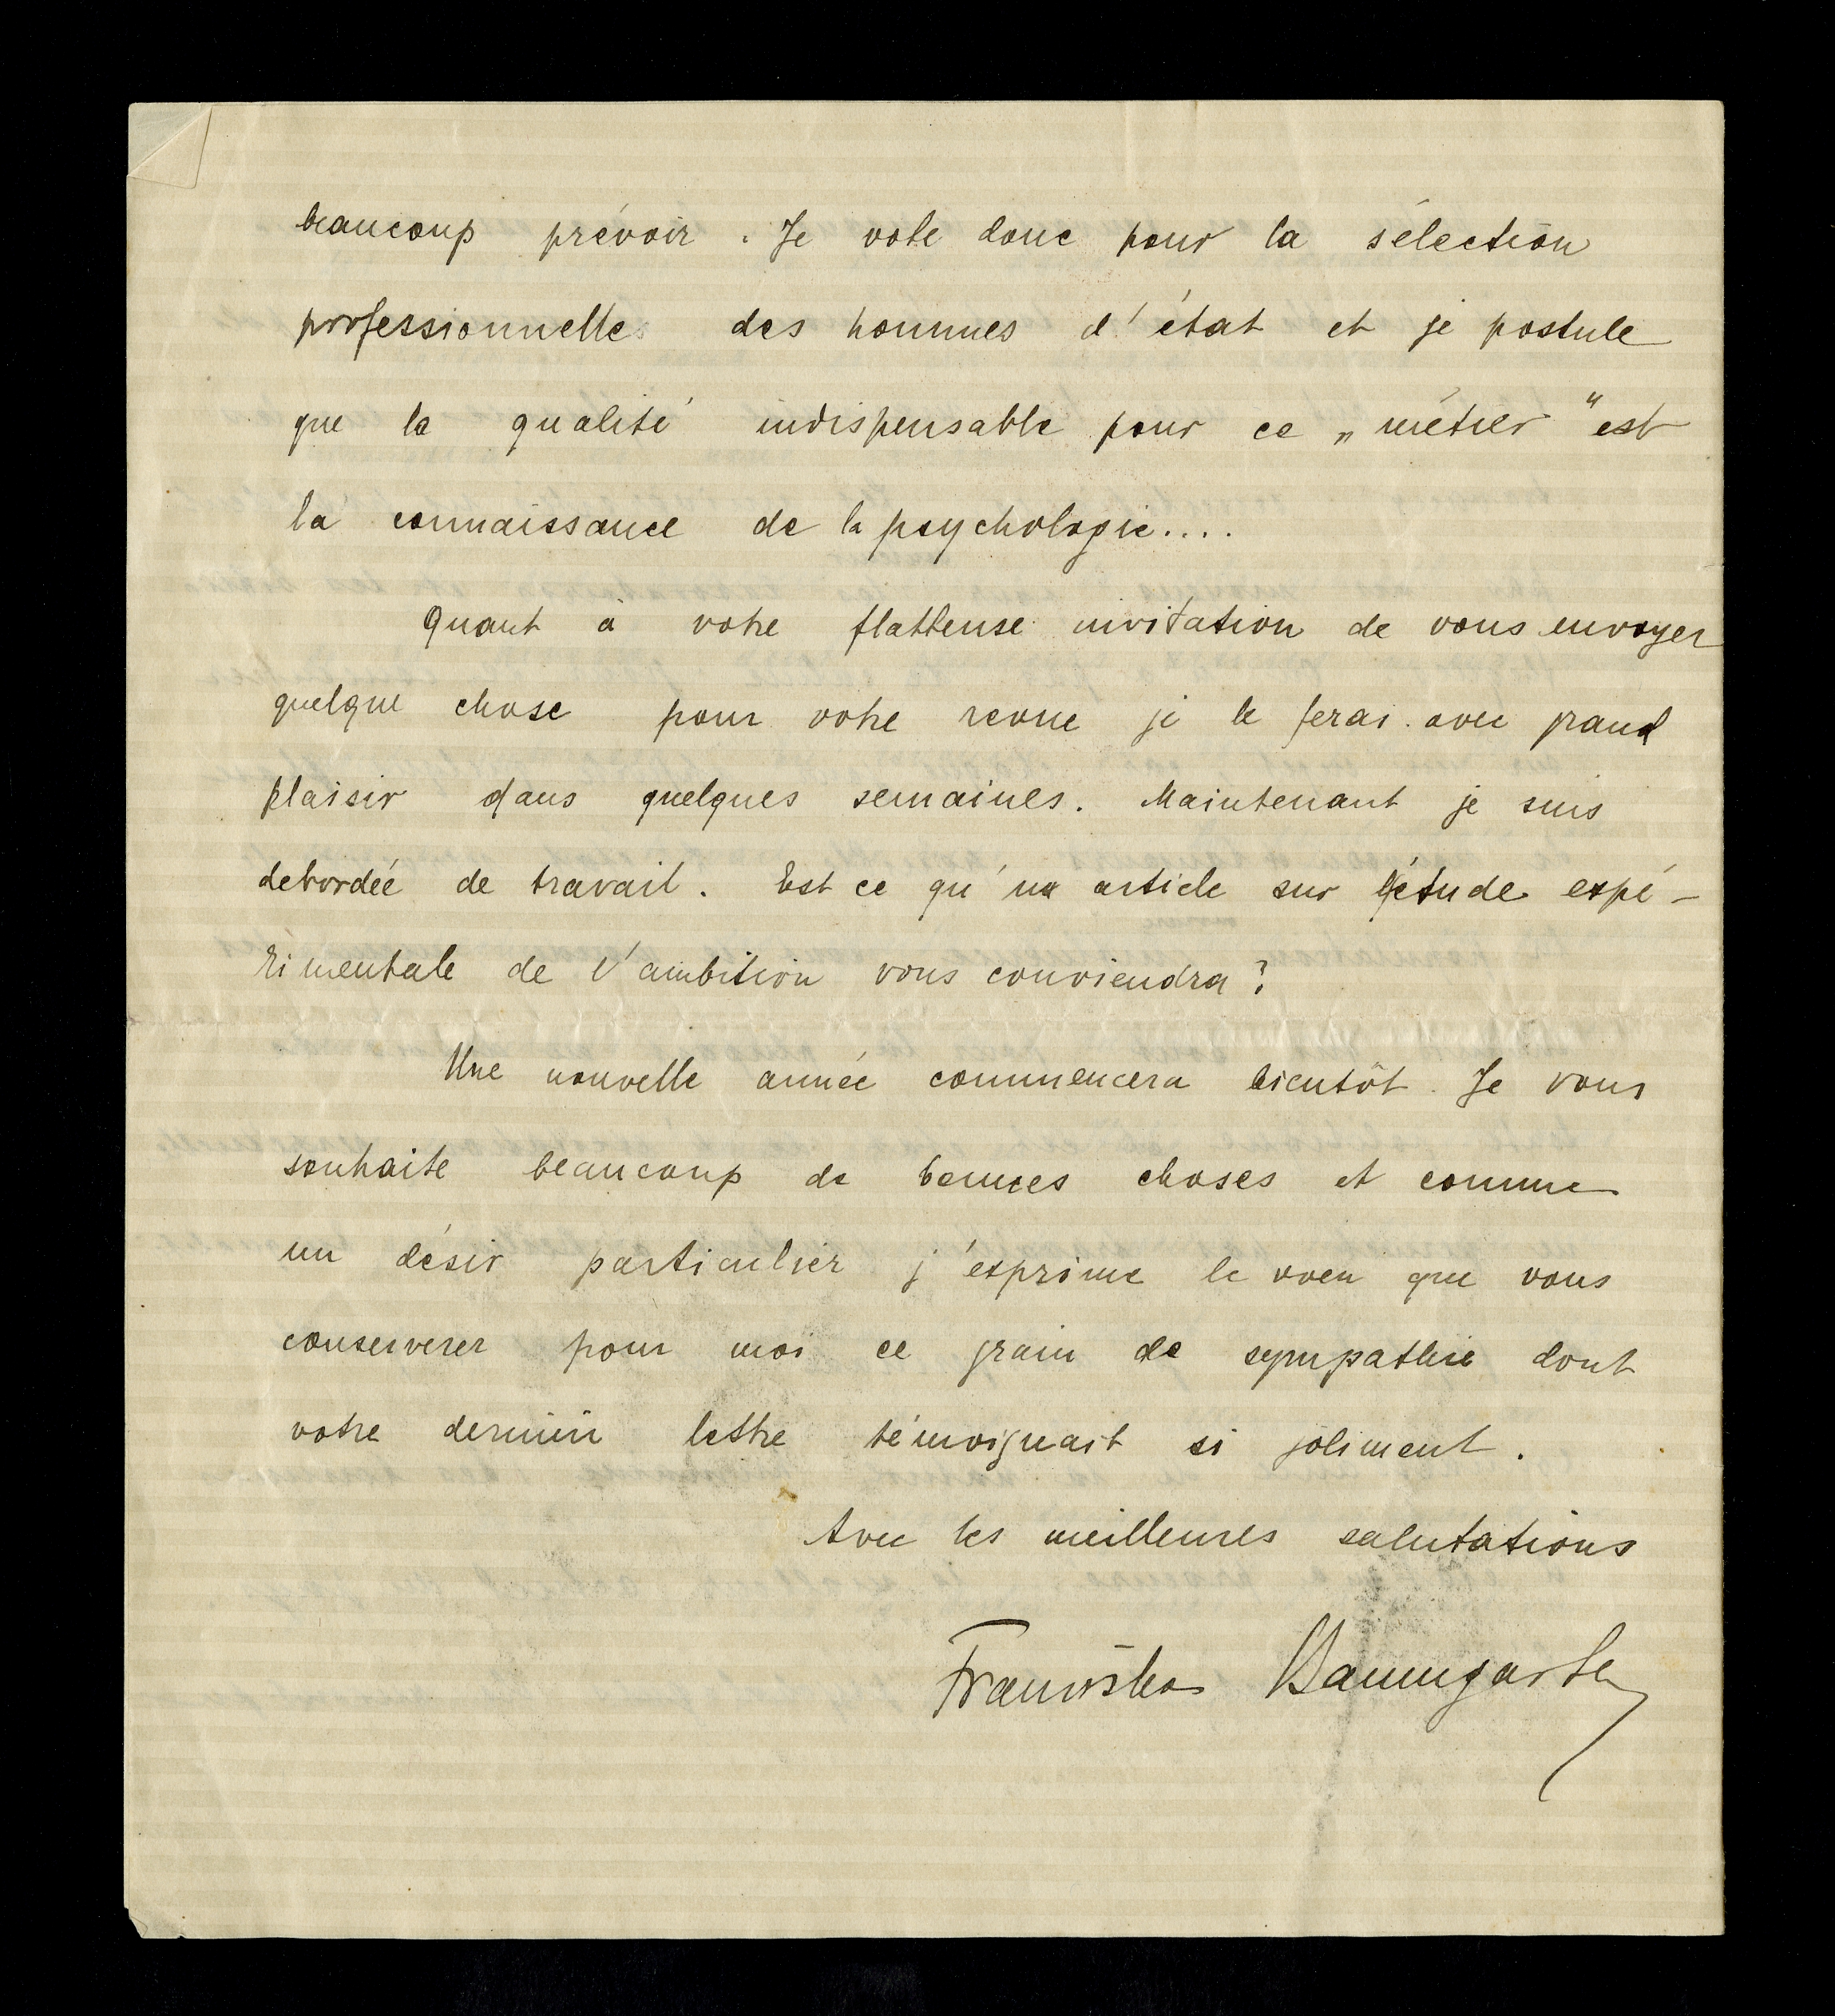 beaucoup prévoir. Je vote donc pour la sélection
professionnelle des hommes d'état et je postule
que la qualité indispensable pour ce „métier" est
la connaissance de la psychologie....
Quant à votre flatteuse invitation de vous envoyer
quelque chose pour votre revue je le ferai avec grand
plaisir dans quelques semaines. Maintenant je suis
debordée de travail. Est ce qu'un article sur l'étude expé-
rimentale de l'ambition vous conviendra?
Une nouvelle année commencera bientôt. Je vous
souhaite beaucoup de bonnes choses et comme
un désir particulier j'exprime le voeu que vous
conserverez pour moi ce grain de sympathie dont
votre dernière lettre témoignait si joliment.
Avec les meilleures salutations
Franziska Baumgarten